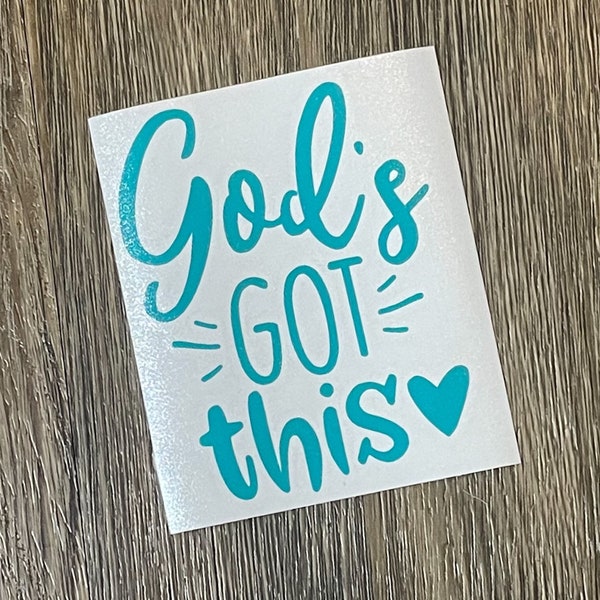 God's
GOT
this